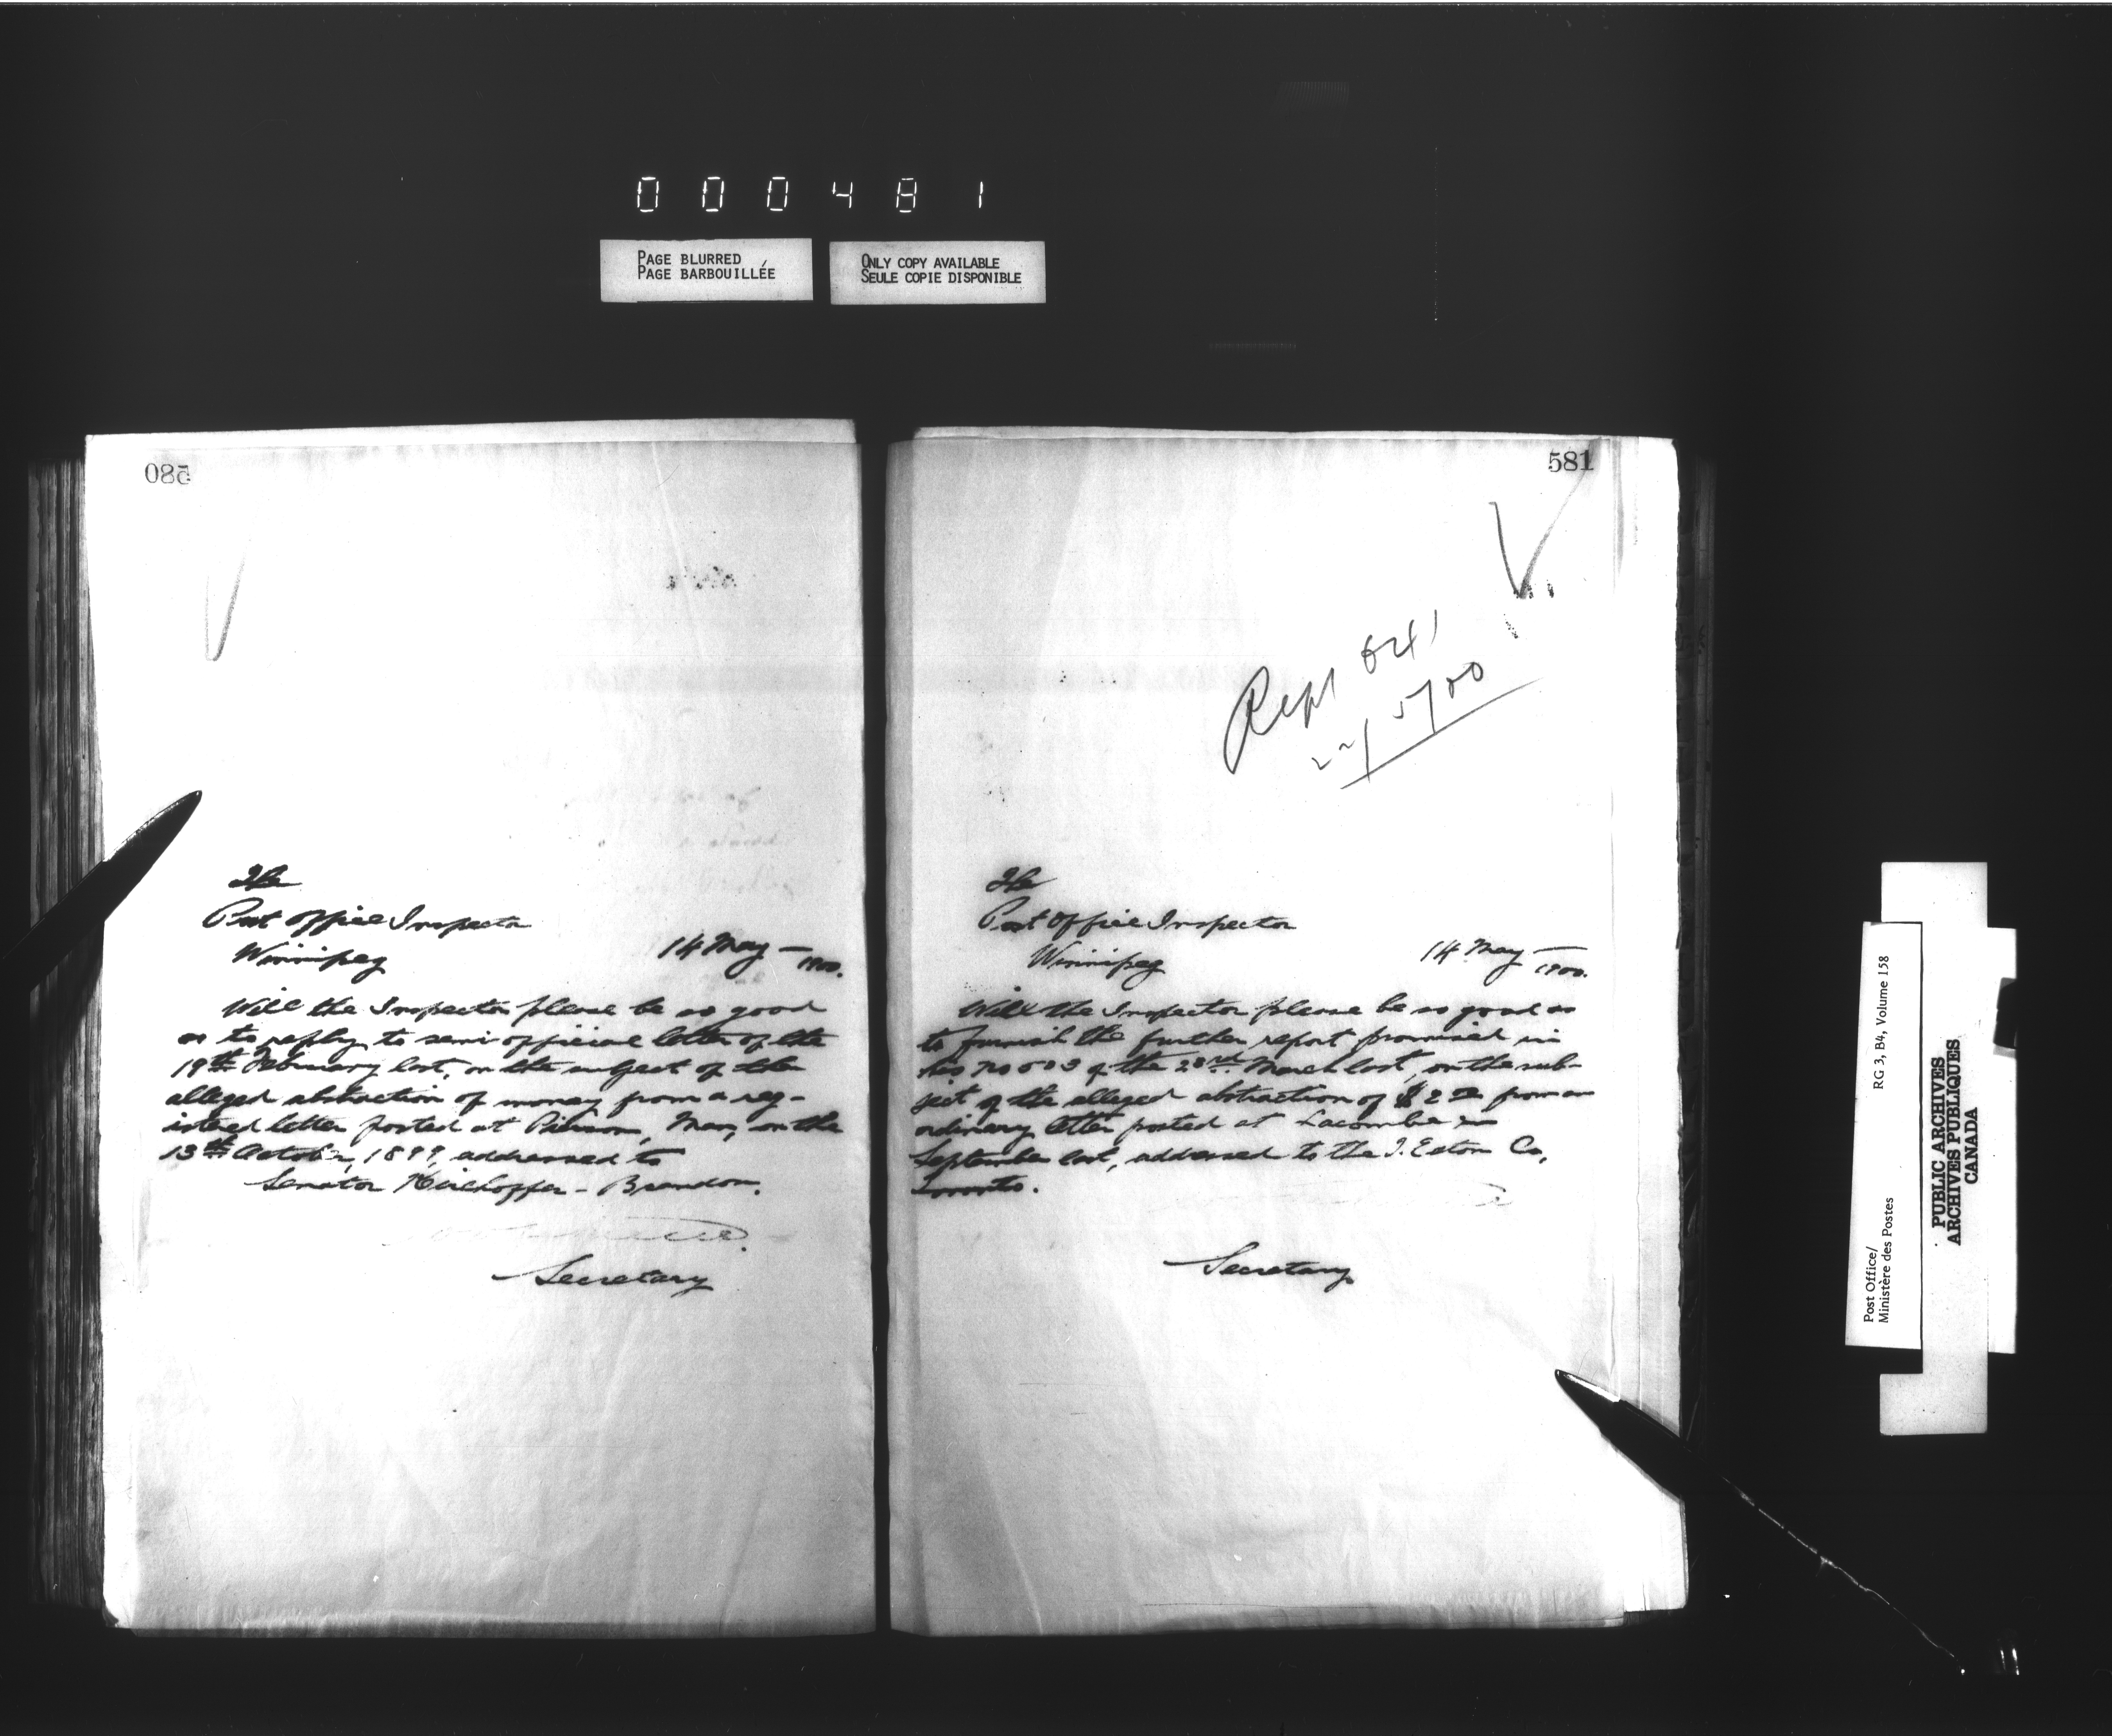 000481
PAGE BLURRED
PAGE BARBOUILLÉE
ONLY COPY AVAILABLE
SEULE COPIE DISPONIBLE
580
The
Post Office Inspector
Winnipeg
14 May —
1900.
Will the Inspector please be so good
as to reply to semi official letter of the
19th February last, on the subject of the
alleged abstraction of money from a reg-
istered letter posted at Pierson, Man, on the
13th October, 1899, addressed to
Senator Kirchoffer - Brandon.
Secretary
581
Rept 641
22/5/00
The
Post Office Inspector
Winnipeg
14 May —
1900.
Will the Inspector please be so good as
to furnish the further report promised in
his No 503 of the March last, on the sub-
ject of the alleged abstraction of $2 from an
ordinary letter posted at Lacombe in
September last, addressed to the T. Eaton Co,
Toronto.
Secretary
Post Office/
Ministère des Postes
RG 3, B4, Volume 158
PUBLIC ARCHIVES
ARCHIVES PUBLIQUES
CANADA